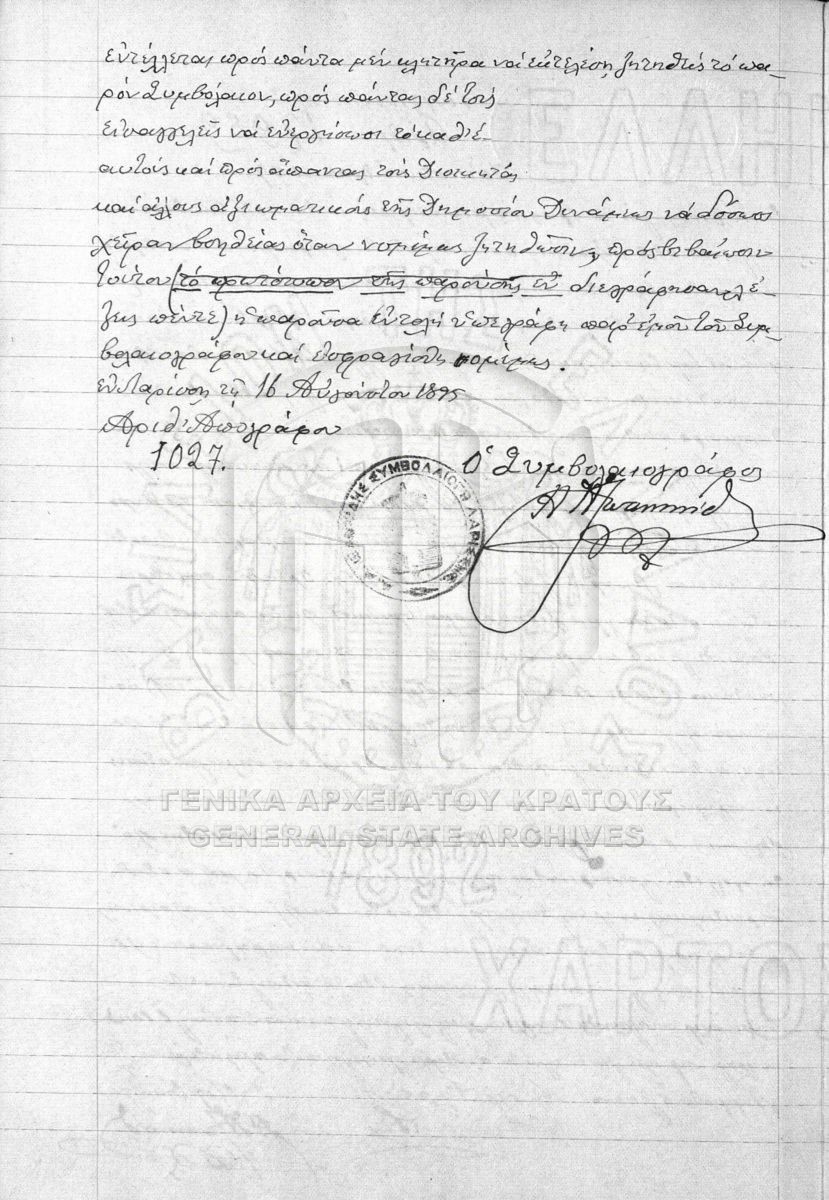 ἐντέλλεται πρός πάντα μέν κλητῆρα νά ἐκτελέσῃ, ζητηθείς τό πα-
ρόν Συμβόλαιον, πρός πάντας δέ τούς
εἰσαγγελεῖς νά ἐνεργήσωσι τό καθ'
αυτούς καί πρός ἅπαντας τούς Διοικητάς
καί ἄλλους ἀξιωματικούς τῆς Δημοσίου Δυνάμεως νά δώσωσι
χεῖραν βοηθείας ὅταν νομίμως ζητηθῶσιν, Πρός βεβαίωσιν
τούτου (τό πρωτότυπον τῆς παρούσης ἐν διεγράφησαν λέ-
ξεις πέντε) ἡ παροῦσα ἐντολή ὑπεγράφη παρ' ἐμοῦ τοῦ Συμ-
βολαιογράφου καί ἐσφραγίσθη νομίμως.
ἐν Λαρίσσῃ τῇ 16 Αὐγούστου 1895
Ἀριθ. Ἀπογράφου
1027.
Ὁ Συμβολαιογράφος
ΣΥΜΒΟΛΑΙΟΓΡ ΛΑΡΙΣΣΗΣ
ΓΕΝΙΚΑ ΑΡΧΕΙΑ ΤΟΥ ΚΡΑΤΟΥΣ
GENERAL STATE ARCHIVES
1892
ΧΑΡΤΟ